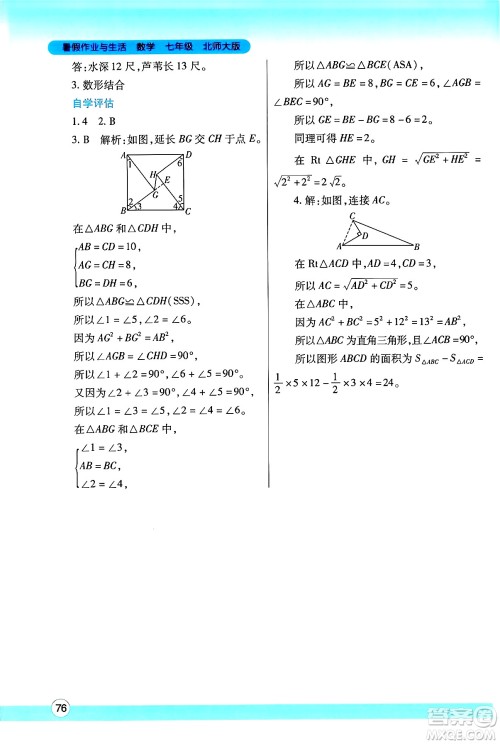 暑假作业与生活 数学 七年级 北师大版
答:水深 12 尺,芦苇长 13 尺.
3. 数形结合
自学评估
1. 4  2. B
3. B 解析:如图,延长 BG 交 CH 于点 E.
A D
1 6
H
E
G
2 3 4 5
B C
在△ABG 和△CDH 中,
AB = CD = 10,
AG = CH = 8,
BG = DH = 6,
所以△ABG≌△CDH (SSS).
所以∠1 = ∠5, ∠2 = ∠6.
因为 AG² + BG² = AB²,
所以∠AGB = ∠CHD = 90°.
所以∠1 + ∠2 = 90°, ∠5 + ∠6 = 90°.
又因为∠2 + ∠3 = 90°, ∠4 + ∠5 = 90°,
所以∠1 = ∠3 = ∠5, ∠2 = ∠4 = ∠6.
在△ABG 和△BCE 中,
∠1 = ∠3,
AB = BC,
∠2 = ∠4,
所以△ABG≌△BCE (ASA).
所以 BE = AG = 8, CE = BG = 6, ∠AGB =
∠BEC = 90°.
所以 GE = BE − BG = 8 − 6 = 2.
同理可得 HE = 2.
在 Rt △GHE 中, GH = √(GE² + HE²) =
√(2² + 2²) = 2√2.
4. 解:如图,连接 AC.
C
D
A B
在 Rt△ACD 中, AD = 4, CD = 3,
所以 AC = √(AD² + CD²) = 5.
因为 AC² + BC² = AB²,
所以△ABC 为直角三角形, ∠ACB = 90°.
所以图形 ABCD 的面积为 S△ABC − S△ACD =
1/2 × 5 × 12 − 1/2 × 3 × 4 = 24.
76
答案圈
MXQE.COM